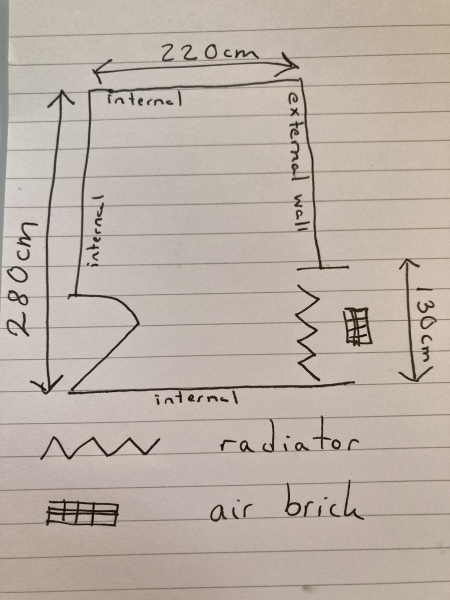 220cm
internal
external wall
internal
280cm
130cm
internal
radiator
air brick